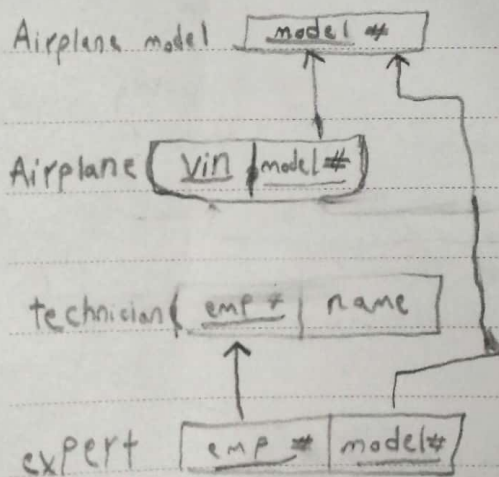 Airplane model model #
Airplane vin model #
technician emp # name
expert emp # model #